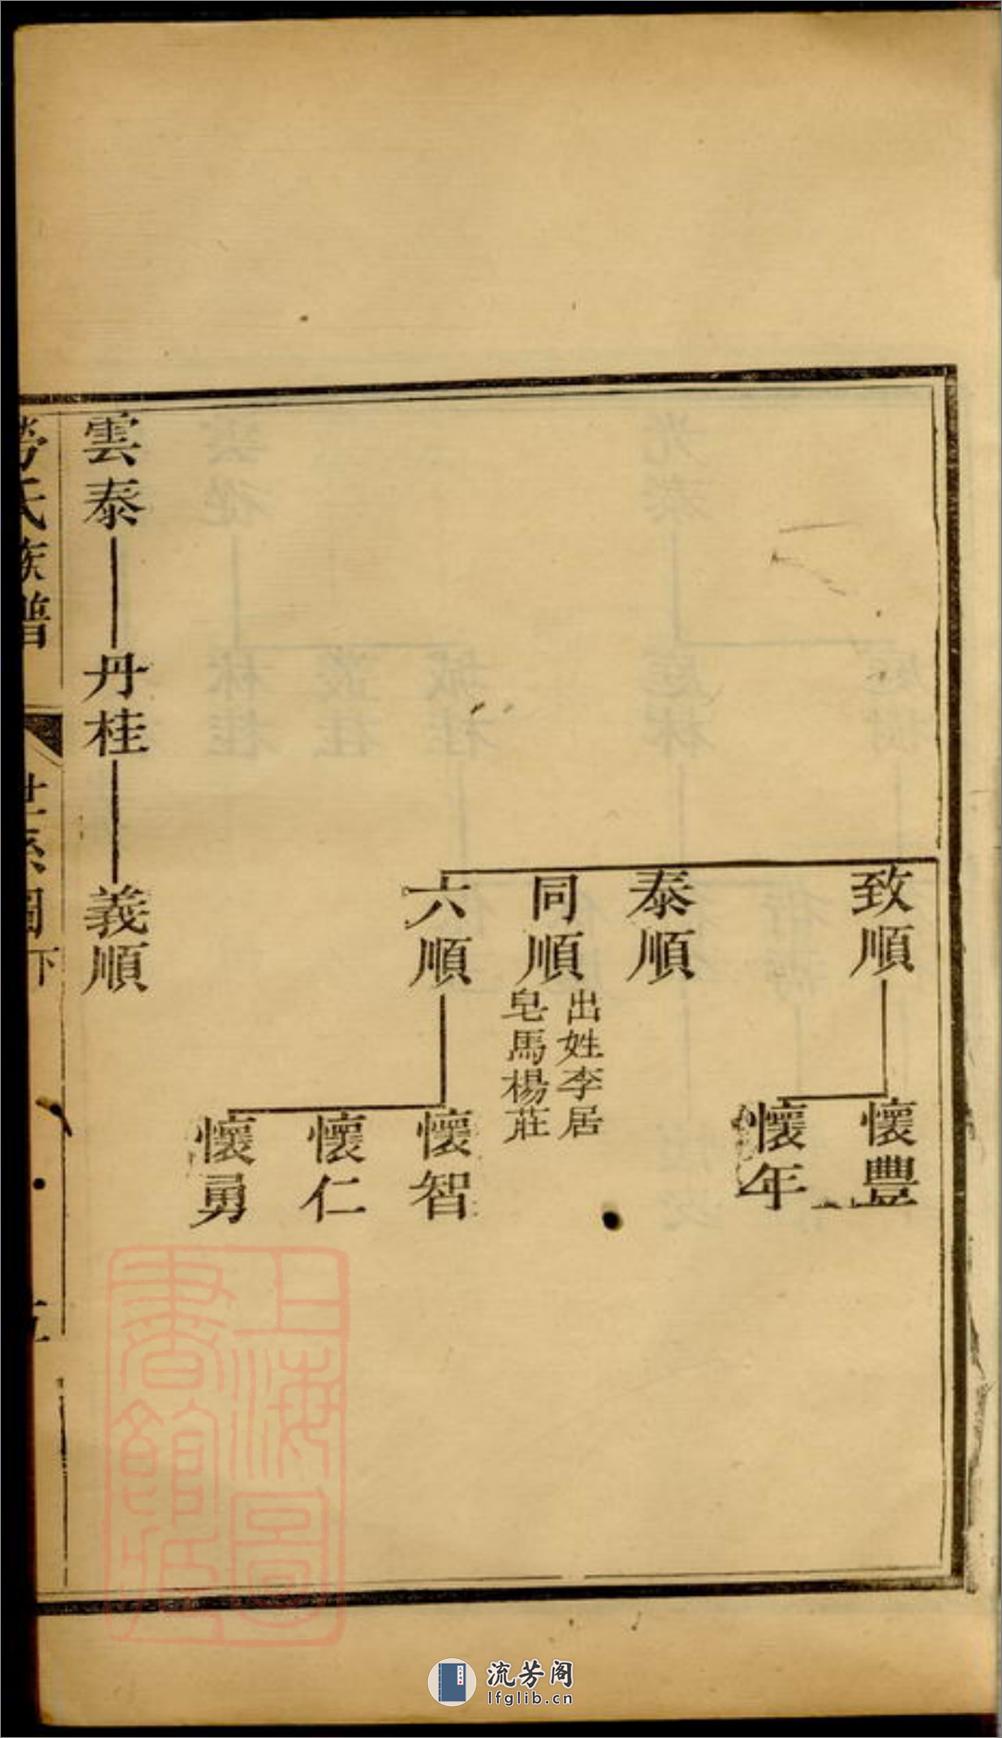 致順
懷豐
懷年
泰順
同順
出姓李居
皂馬楊莊
六順
懷智
懷仁
懷勇
雲泰
丹桂
義順
勞氏族譜
世系圖下
上海圖
書館藏
流芳阁
lfglib.cn